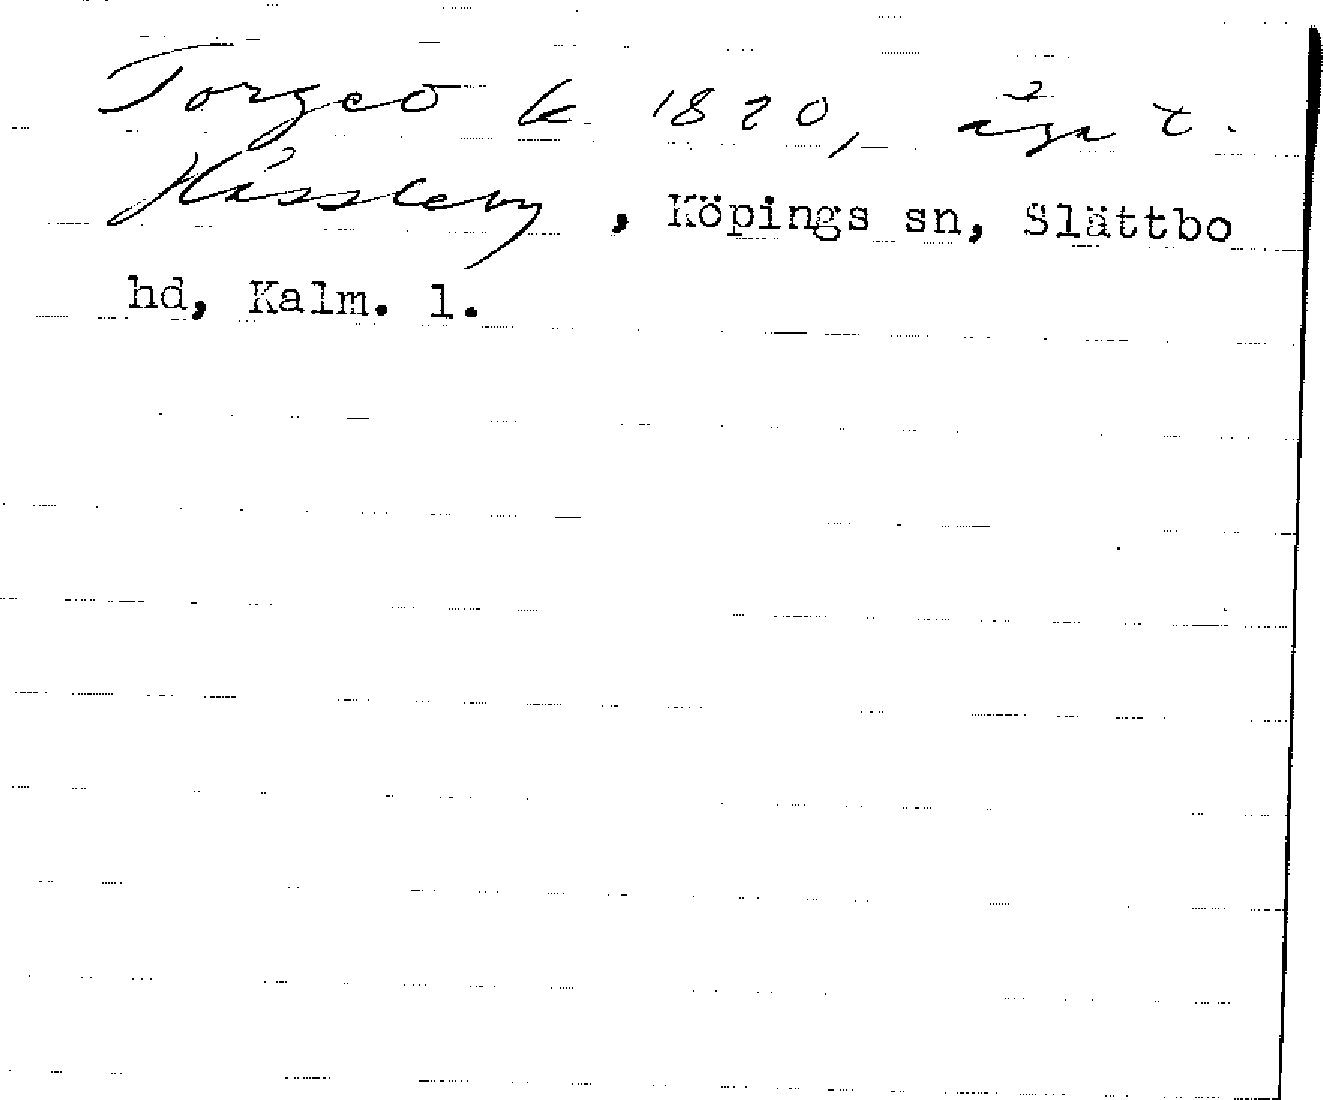 Torgeö k 1820, äga t.
Hässleby, Köpings sn, Slättbo
hd, Kalm. l.